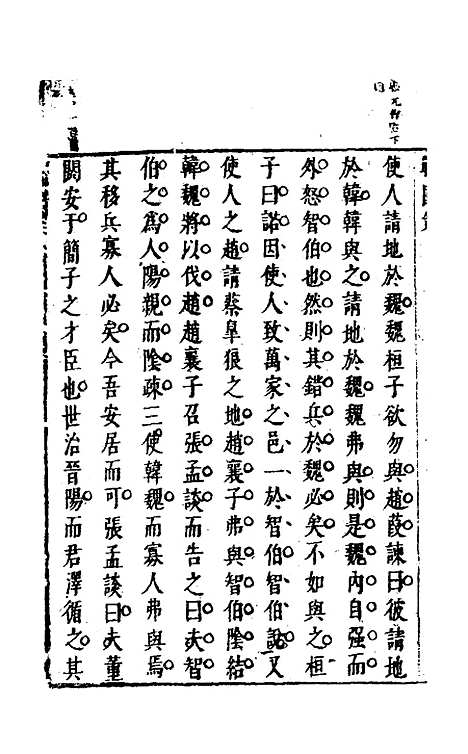 使人請地於魏魏桓子欲勿與趙葭諫曰彼請地
於韓韓與之請地於魏魏弗與則是魏内自强而
外怒智伯也然則其錯兵於魏必矣不如與之桓
子曰諾因使人致萬家之邑一於智伯智伯說又
使人之趙請蔡皐狼之地趙襄子弗與智伯陰結
韓魏將以伐趙趙襄子召張孟談而告之曰夫智
伯之爲人陽親而陰疎三使韓魏而寡人弗與焉
其移兵寡人必矣今吾安居而可張孟談曰夫董
閼安于簡子之才臣也世治晉陽而君澤循之其